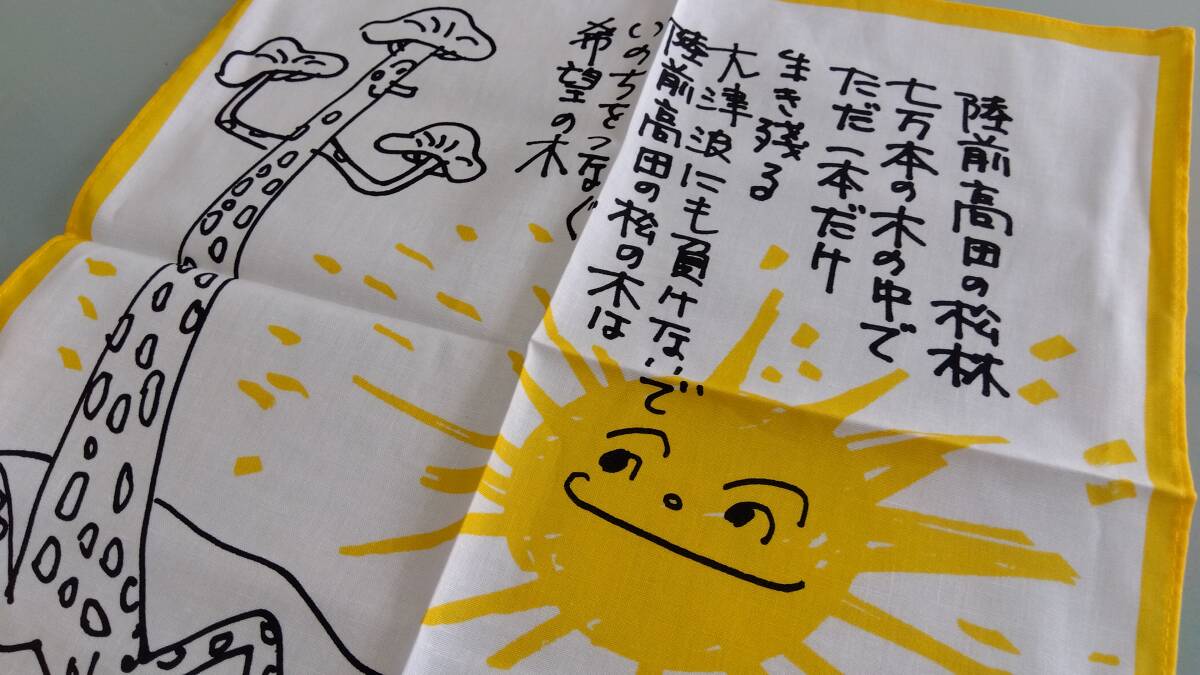 陸前高田の松林
七万本の木の中で
ただ一本だけ
生き残る
大津波にも負けないで
陸前高田の松の木は
いのちをつなぐ
希望の木